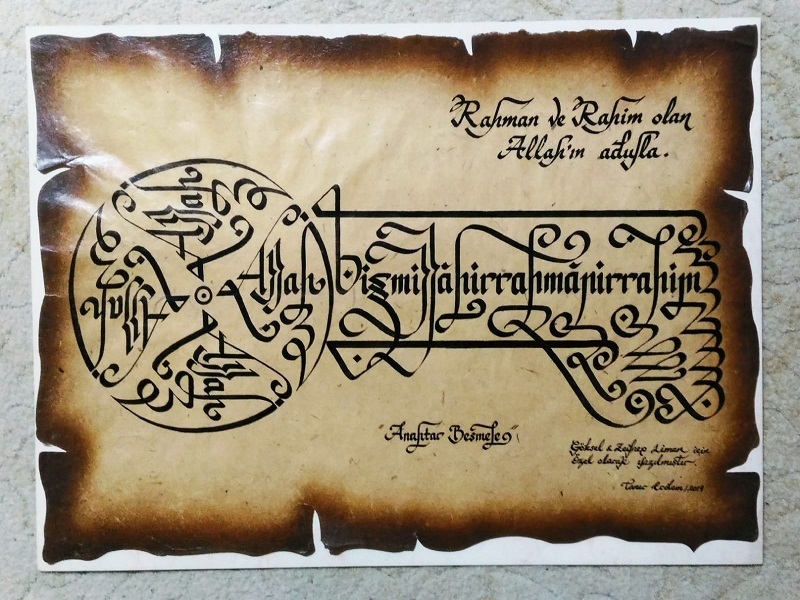 Rahman ve Rahim olan
Allah'ın adıyla.
Allah
Allah
Allah
Allah
Bismillâhirrahmânirrahîm
"Anahtar Besmele"
Göksel & Zeynep Liman için
Özel olarak yazılmıştır.